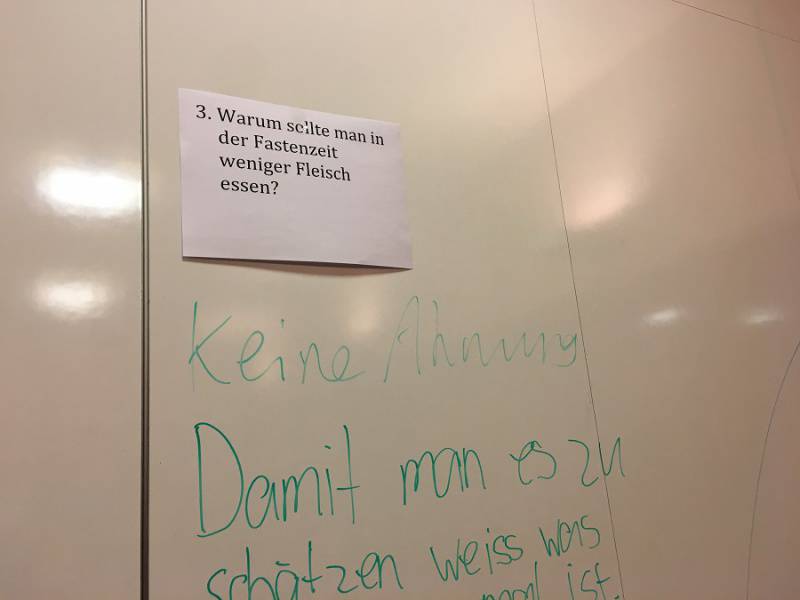 3. Warum sollte man in
der Fastenzeit
weniger Fleisch
essen?
Keine Ahnung
Damit man es zu
schätzen weiss was
ist.